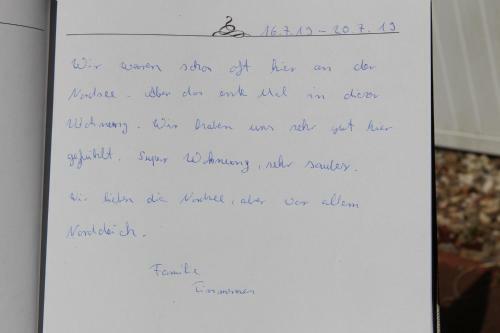 16.7.19 - 20.7.19
Wir waren schon oft hier an der
Nordsee. Aber das erste Mal in dieser
Wohnung. Wir haben uns sehr gut hier
gefühlt. Super Wohnung, sehr sauber.
Wir lieben die Nordsee, aber vor allem
Norddeich.
Familie